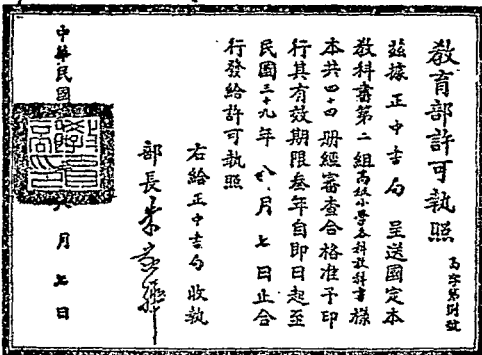 教育部許可執照
高字第 號
茲據 正中書局 呈送國定本
教科書第二組高級小學各科教科書樣
本共四十四册經審查合格准予印
行其有效期限叁年自即日起至
民國三十九年 八 月 七 日止合
行發給許可執照
右給正中書局收執
部長朱家驊
中華民國
八月七日